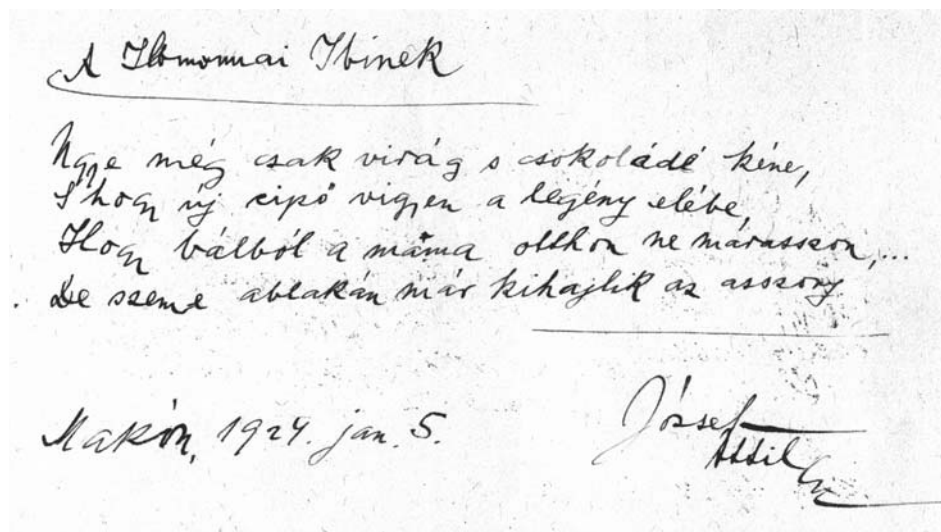 A Homonnai Ibinek
Ugye még csak virág s csokoládé kéne,
S hogy új cipő vigyen a legény elébe,
Hogy bálból a máma otthon ne márasszon,...
De szeme ablakán már kihajlik az asszony
Makón, 1924. jan. 5.
József
Attila